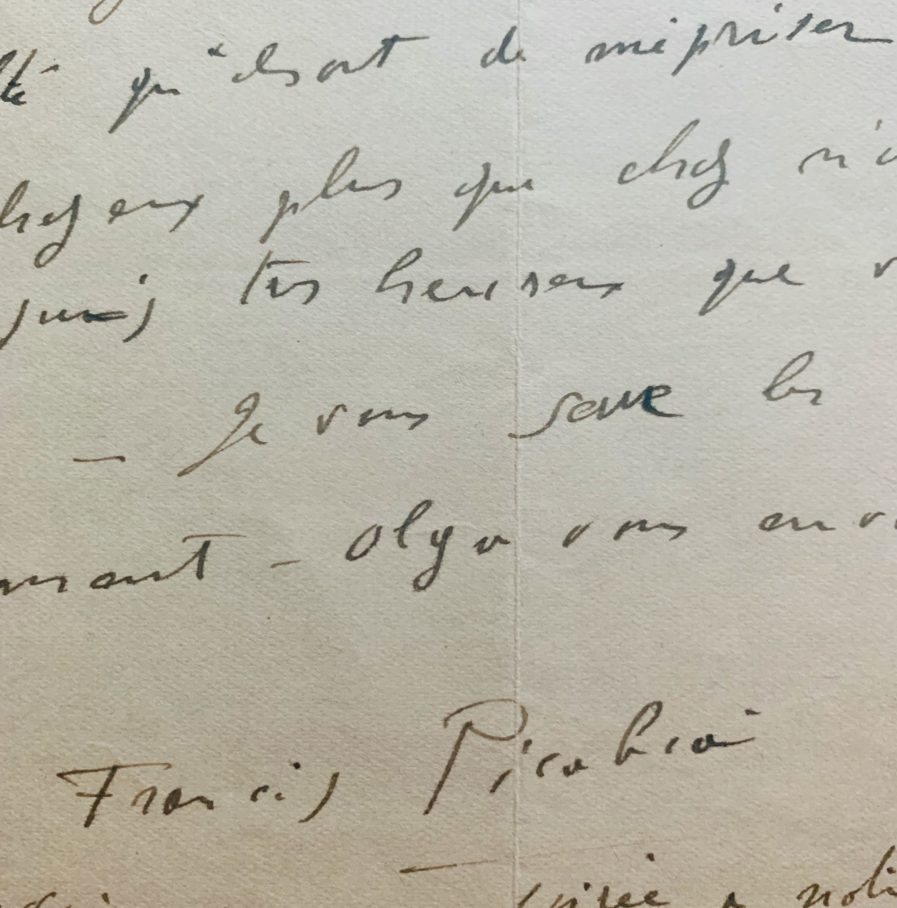 té qu'ils ont de mépriser
chez eux plus que chez n'i
suis très heureux que v
— Je vous serre les
ment — Olga vous env
Francis Picabia
soirée a noti